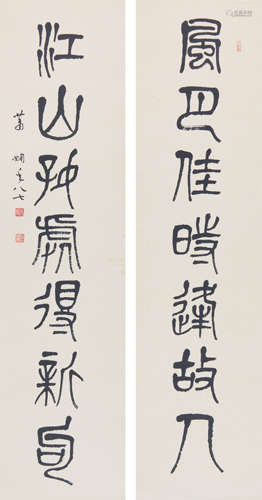 風月佳時逢故人
江山好處得新句
蕭嫻年八七